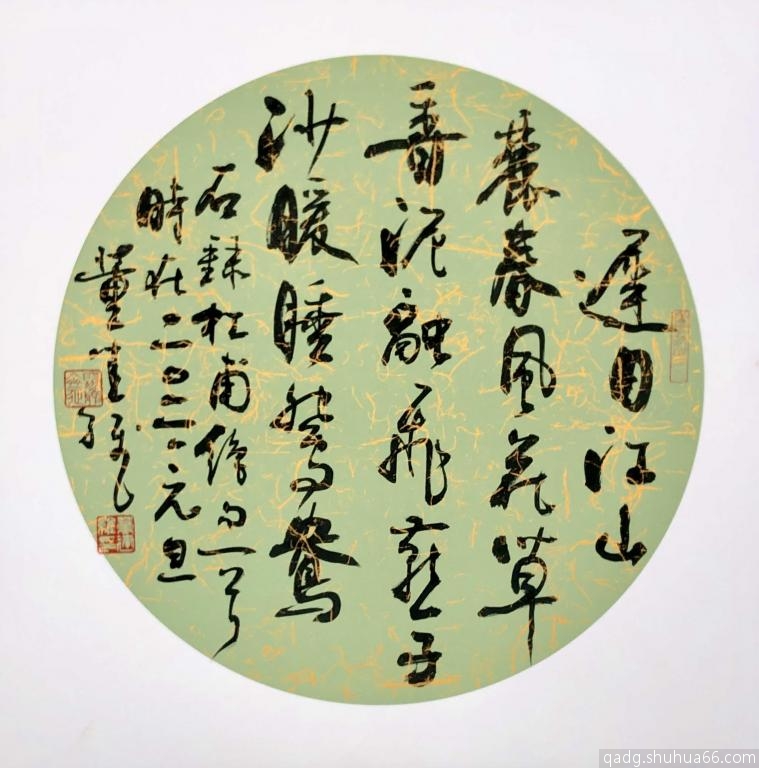 遲日江山
麗春風花草
香泥融飛燕子
沙暖睡鴛鴦
右録杜甫绝句一首
時在二〇二元旦
董
qadg.shuhua66.com